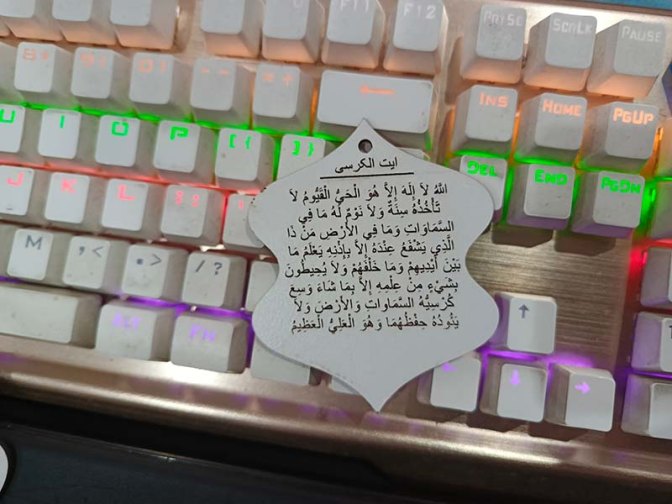 F11 F12 PRTSC SCRLK PAUSE
INS HOME PGUP
U I O P [{ ]} DEL END PGDN
J K L
M ,< .> /?
FN
ايت الكرسى
اَللهُ لاَ إِلَهَ إِلاَّ هُوَ الْحَيُّ الْقَيُّومُ لاَ
تَأْخُذُهُ سِنَةٌ وَلاَ نَوْمٌ لَهُ مَا فِي
السَّمَاوَاتِ وَمَا فِي الأَرْضِ مَنْ ذَا
الَّذِي يَشْفَعُ عِنْدَهُ إِلاَّ بِإِذْنِهِ يَعْلَمُ مَا
بَيْنَ أَيْدِيهِمْ وَمَا خَلْفَهُمْ وَلاَ يُحِيطُونَ
بِشَيْءٍ مِنْ عِلْمِهِ إِلاَّ بِمَا شَاءَ وَسِعَ
كُرْسِيُّهُ السَّمَاوَاتِ وَالأَرْضَ وَلاَ
يَئُودُهُ حِفْظُهُمَا وَهُوَ الْعَلِيُّ الْعَظِيمُ